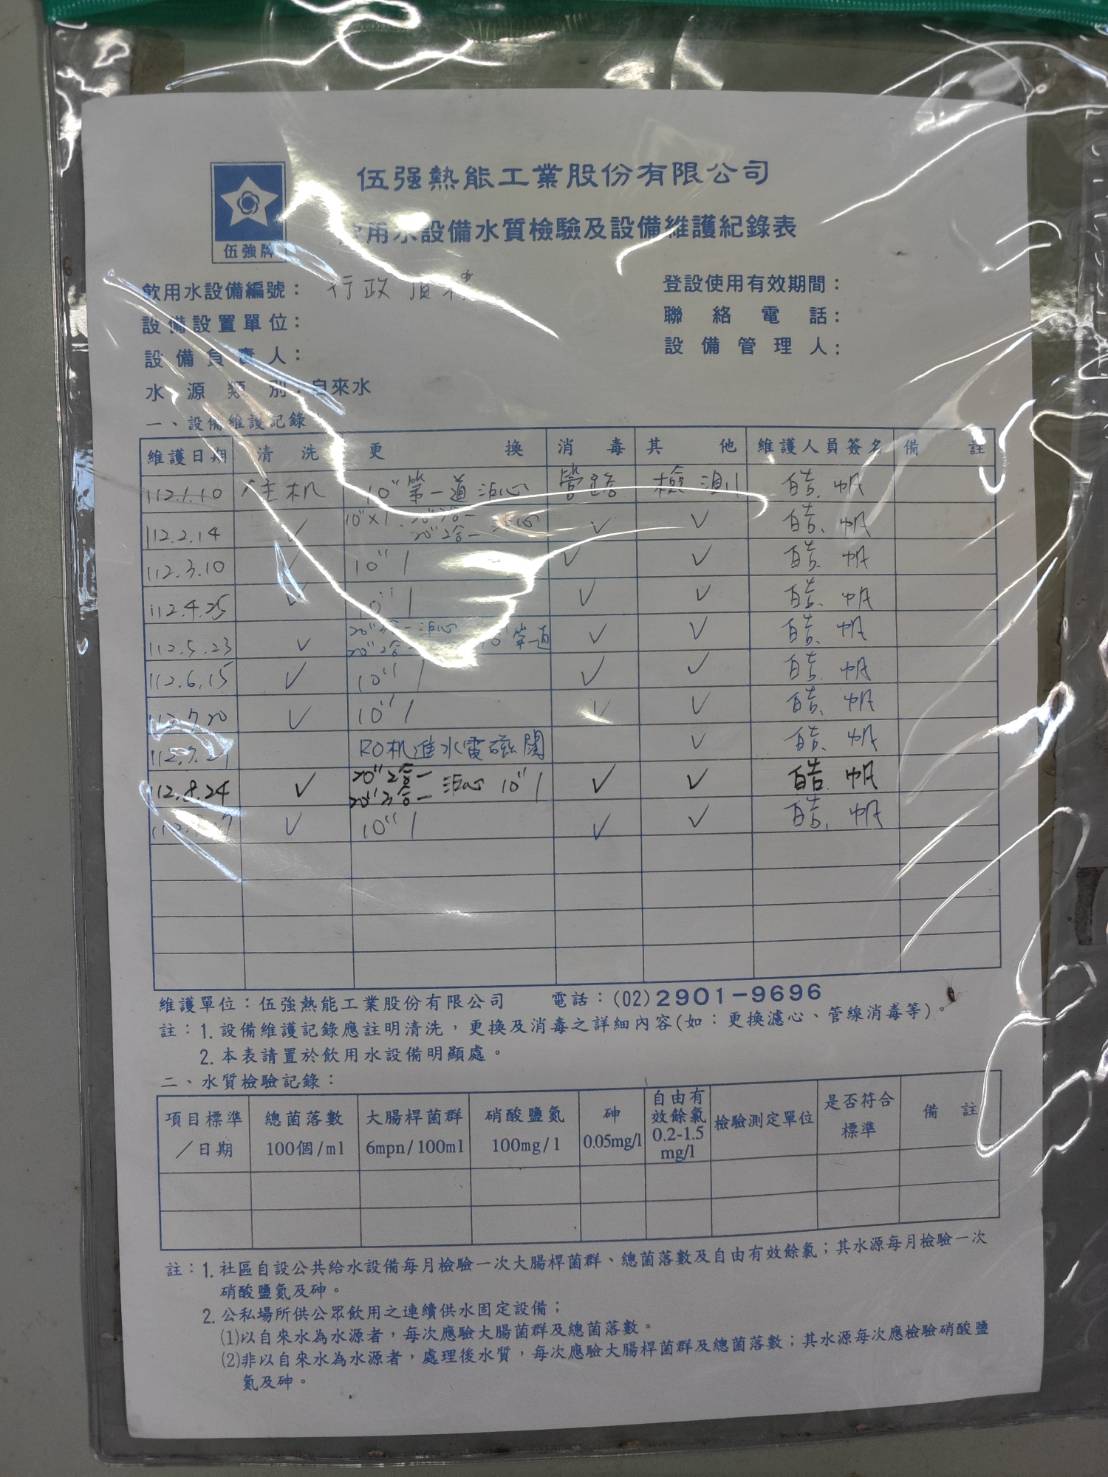 伍强熱能工業股份有限公司
伍強牌
用水設備水質檢驗及設備維護紀錄表
飲用水設備編號： 行政頂樓
登設使用有效期間：
設備設置單位：
聯絡電話：
設備負責人：
設備管理人：
水源類別：自來水
一、設備維護記錄
維護日期 清洗 更換 消毒 其他 維護人員簽名 備註
112.1.10 主机 10"第一道沍心 管路 檢測 皓帆
112.2.14 ✓ 10"x1 20"2合一 沍心 ✓ ✓ 皓帆
112.3.10 ✓ 10"1 ✓ ✓ 皓帆
112.4.25 ✓ 10"1 ✓ ✓ 皓帆
112.5.23 ✓ 20"2合一 沍心 10"第一道 ✓ ✓ 皓帆
112.6.15 ✓ 10"1 ✓ ✓ 皓帆
112.7.20 ✓ 10"1 ✓ ✓ 皓帆
112.7. RO机進水電磁閥 ✓ 皓帆
112.8.24 ✓ 20"2合一 20"3合一 沍心 10"1 ✓ ✓ 皓帆
✓ 10"1 ✓ ✓ 皓帆
維護單位：伍強熱能工業股份有限公司 電話：(02)2901-9696
註：1.設備維護記錄應註明清洗，更換及消毒之詳細內容(如：更換濾心、管線消毒等)。
2.本表請置於飲用水設備明顯處。
二、水質檢驗記錄：
項目標準／日期 總菌落數 100個/ml 大腸桿菌群 6mpn/100ml 硝酸鹽氮 100mg/l 砷 0.05mg/l 自由有效餘氯 0.2-1.5 mg/l 檢驗測定單位 是否符合標準 備註
註：1.社區自設公共給水設備每月檢驗一次大腸桿菌群、總菌落數及自由有效餘氯；其水源每月檢驗一次
硝酸鹽氮及砷。
2.公私場所供公眾飲用之連續供水固定設備；
(1)以自來水為水源者，每次應驗大腸菌群及總菌落數。
(2)非以自來水為水源者，處理後水質，每次應驗大腸桿菌群及總菌落數；其水源每次應檢驗硝酸鹽
氮及砷。